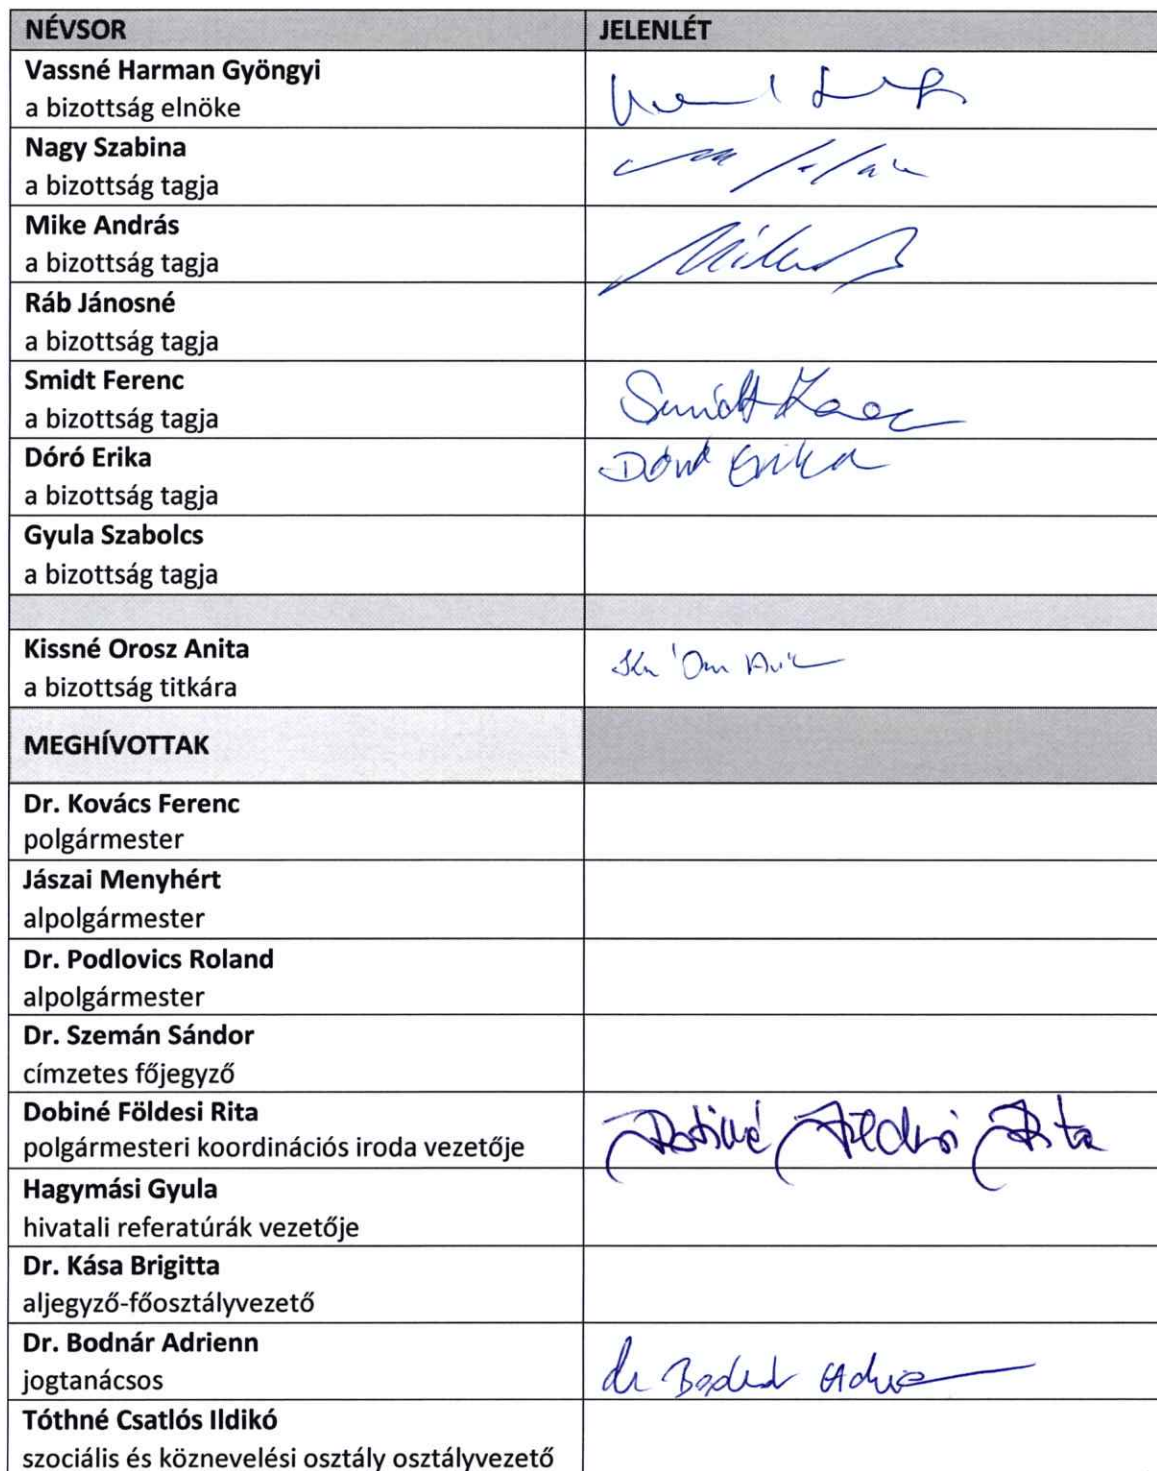 NÉVSOR JELENLÉT
Vassné Harman Gyöngyi
a bizottság elnöke
Nagy Szabina
a bizottság tagja
Mike András
a bizottság tagja
Ráb Jánosné
a bizottság tagja
Smidt Ferenc
a bizottság tagja
Smidt
Dóró Erika
a bizottság tagja
Dóró Erika
Gyula Szabolcs
a bizottság tagja
Kissné Orosz Anita
a bizottság titkára
MEGHÍVOTTAK
Dr. Kovács Ferenc
polgármester
Jászai Menyhért
alpolgármester
Dr. Podlovics Roland
alpolgármester
Dr. Szemán Sándor
címzetes főjegyző
Dobiné Földesi Rita
polgármesteri koordinációs iroda vezetője
Dobiné Földesi Rita
Hagymási Gyula
hivatali referatúrák vezetője
Dr. Kása Brigitta
aljegyző-főosztályvezető
Dr. Bodnár Adrienn
jogtanácsos
Tóthné Csatlós Ildikó
szociális és köznevelési osztály osztályvezető